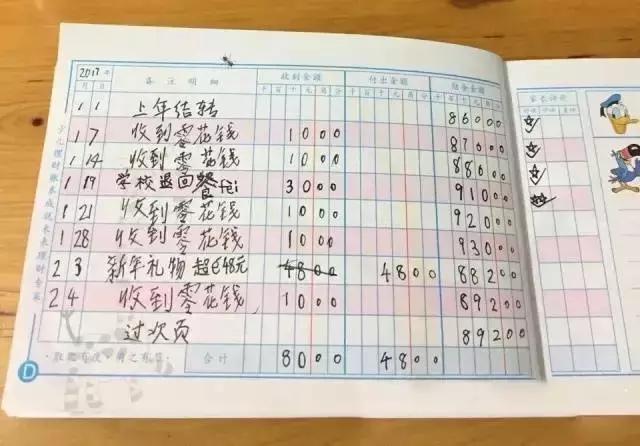 2017年 备注明细 收到金额 付出金额 结余金额
月 日 千 百 十 元 角 分 千 百 十 元 角 分 千 百 十 元 角 分
1 1 上年结转 86000
1 7 收到零花钱 1000 87000
1 14 收到零花钱 1000 88000
1 19 学校退回餐fei 3000 91000
1 21 收到零花钱 1000 92000
1 28 收到零花钱 1000 93000
2 3 新年礼物 超 48元 4800 4800 88200
2 4 收到零花钱 1000 89200
过次页 89200
合计 8000 4800
少儿理财账本成就未来理财专家
D
家长评价